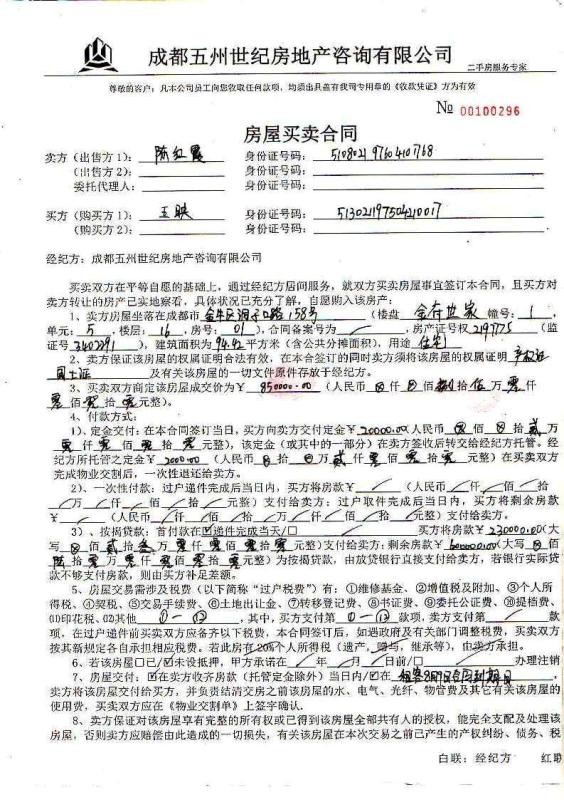 成都五州世纪房地产咨询有限公司
二手房服务专家
尊敬的客户：凡本公司员工向您收取任何款项，均须出具盖有我司专用章的《收款凭证》方为有效
№ 00100296
房屋买卖合同
卖方（出售方1）： 陈红霞 身份证号码：
（出售方2）： 身份证号码：
委托代理人： 身份证号码：
买方（购买方1）： 王映 身份证号码：
（购买方2）： 身份证号码：
经纪方：成都五州世纪房地产咨询有限公司
买卖双方在平等自愿的基础上，通过经纪方居间服务，就双方买卖房屋事宜签订本合同，且买方对
卖方转让的房产已实地察看，具体状况已充分了解，自愿购入该房产：
1、卖方房屋坐落在成都市 金牛区洞子口路158号 （楼盘 金府世家 幢号： 1 ，
单元： 5 ，楼层： 16 ，房号： 01 ），合同备案号为 ，房产证号权 2197775 （监
证号 ），建筑面积为 94.42 平方米（含公共分摊面积），用途 住宅
2、卖方保证该房屋的权属证明合法有效，在本合同签订的同时卖方须将该房屋的权属证明 产权证
国土证 及有关该房屋的一切文件原件存放于经纪方。
3、买卖双方商定该房屋成交价为￥ 850000.00 （人民币 仟 佰 捌 拾 伍 万 零 仟
零 佰 零 拾 零 元整）。
4、付款方式：
1）、定金交付：在本合同签订当日，买方向卖方交付定金￥ 20000.00 （人民币 佰 拾 贰 万
零 仟 零 佰 零 拾 零 元整），该定金（或其中的一部分）在卖方签收后转交给经纪方托管。经
纪方所托管之定金￥ 2000.00 （人民币 拾 万 贰 仟 零 佰 零 拾 零 元整）在买卖双方
完成物业交割后，一次性退还给卖方。
2）、一次性付款：过户递件完成后当日内，买方将房款￥ （人民币 仟 佰 拾
万 仟 佰 拾 元整）支付给卖方；过户取件完成后当日内，买方将剩余房款
￥ （人民币 仟 佰 拾 万 仟 佰 拾 元整）支付给卖方。
3）、按揭贷款：首付款在☑递件完成当天/□ 买方将房款￥ 230000.00 （大
写 佰 贰 拾 叁 万 零 仟 零 佰 零 拾 零 元整）支付给卖方；剩余房款￥ 600000.00 （大写 佰
陆 拾 零 万 零 仟 零 佰 零 拾 零 元整）为按揭贷款，由放贷银行直接支付给卖方，若银行实际贷
款不够支付房款，则由买方补足差额。
5、房屋交易需涉及税费（以下简称“过户税费”）有：①维修基金、②增值税及附加、③个人所
得税、④契税、⑤交易手续费、⑥土地出让金、⑦转移登记费、⑧书证费、⑨委托公证费、⑩提档费、
⑪印花税、⑫其他 ，其中，买方支付第 款项，卖方支付第 款
项，在过户递件前买卖双方应备齐以下税费，本合同签订后，如遇政府及有关部门调整税费，买卖双方
按其新规定各自承担相应税费。若此房有20%个人所得税（遗产，赠与，继承等），由卖方承担。
6、若该房屋□已/☑未设抵押，甲方承诺在 年 月 日前/□ 办理注销
7、房屋交付：☑在卖方收齐房款（托管定金除外）当日内/☑在 租客8月9日合同到期日
卖方将该房屋交付给买方，并负责结清交房之前该房屋的水、电、气、光纤、物管费及其它有关该房屋的
使用费，买卖双方应在《物业交割单》上签字确认.
8、卖方保证对该房屋享有完整的所有权或已得到该房屋全部共有人的授权，能完全支配及处理该
房屋，否则卖方应赔偿由此造成的一切损失，有关该房屋在本次交易之前已产生的产权纠纷、债务、税
白联：经纪方 红联